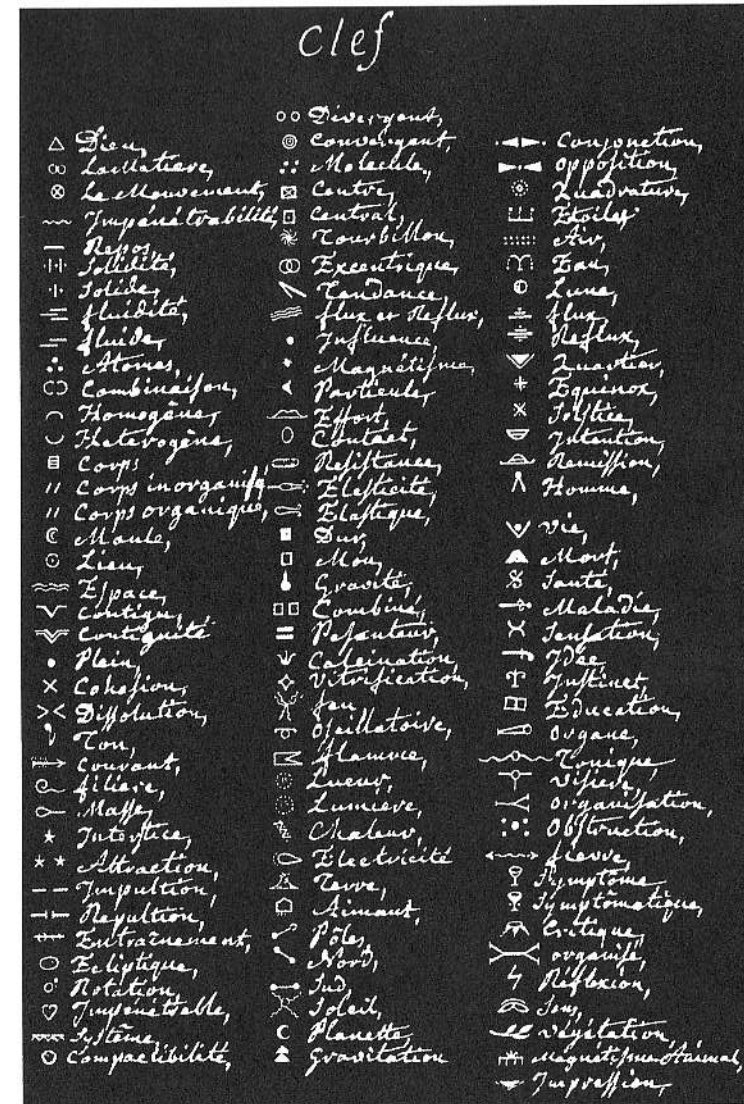 Clef
Dieu,
La Matiere,
Le Mouvement,
Impénétrabilité,
Repos,
Solidité,
Solide,
fluidité,
fluide,
Atomes,
Combinaison,
Homogène,
Heterogène,
Corps
Corps inorganisé
Corps organique,
Moule,
Lieu,
Espace,
Contigu,
Contiguité
Plein,
Cohésion,
Dissolution,
Ton,
Courant,
filiere,
Masse,
Interstice,
Attraction,
Impultion,
Repultion,
Entraînement,
Ecliptique,
Rotation,
Impénétrable,
Système,
Compactibilité,
Divergent,
Convergent,
Molécule,
Centre,
Central,
Tourbillon,
Excentrique,
Tendance,
flux et Reflux,
Influence,
Magnétisme,
Particule,
Effort,
Contact,
Resistance,
Elasticité,
Elastique,
Dur,
Mou,
Gravité,
Combiné,
Pesanteur,
Calcination,
Vitrification,
feu,
Oscillatoire,
flamme,
Lueur,
Lumiere,
Chaleur,
Electricité
Terre,
Aimant,
Pôles,
Nord,
Sud,
Soleil,
Planette,
Gravitation
Conjonction,
Opposition,
Quadrature,
Etoiles
Air,
Eau,
Lune,
flux,
Reflux,
Quartier,
Equinox,
Solstice,
Intention,
Remission,
Homme,
Vie,
Mort,
Santé,
Maladie,
Sensation,
Idée,
Instinct,
Education,
Organe,
Tonique,
Visiere,
Organisation,
Obstruction,
fievre,
Symptôme,
Symptômatique,
Critique,
organisé,
Réflexion,
Sens,
Végétation,
Magnétisme Animal,
Impression,